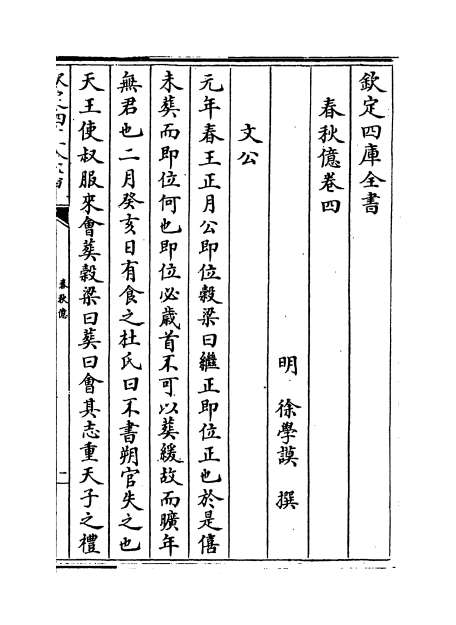 欽定四庫全書
春秋億卷四
明 徐學謨 撰
文公
元年春王正月公即位穀梁曰繼正即位正也於是僖
未葬而即位何也即位必歲首不可以葬緩故而曠年
無君也二月癸亥日有食之杜氏曰不書朔官失之也
天王使叔服來會葬穀梁曰葬曰會其志重天子之禮
春秋億
一